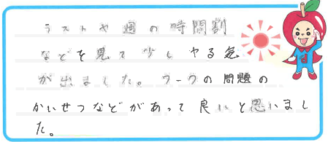 ラストや週の時間割
などを見て少しやる気
が出ました。ワークの問題の
かいせつなどがあって良いと思いまし
た。